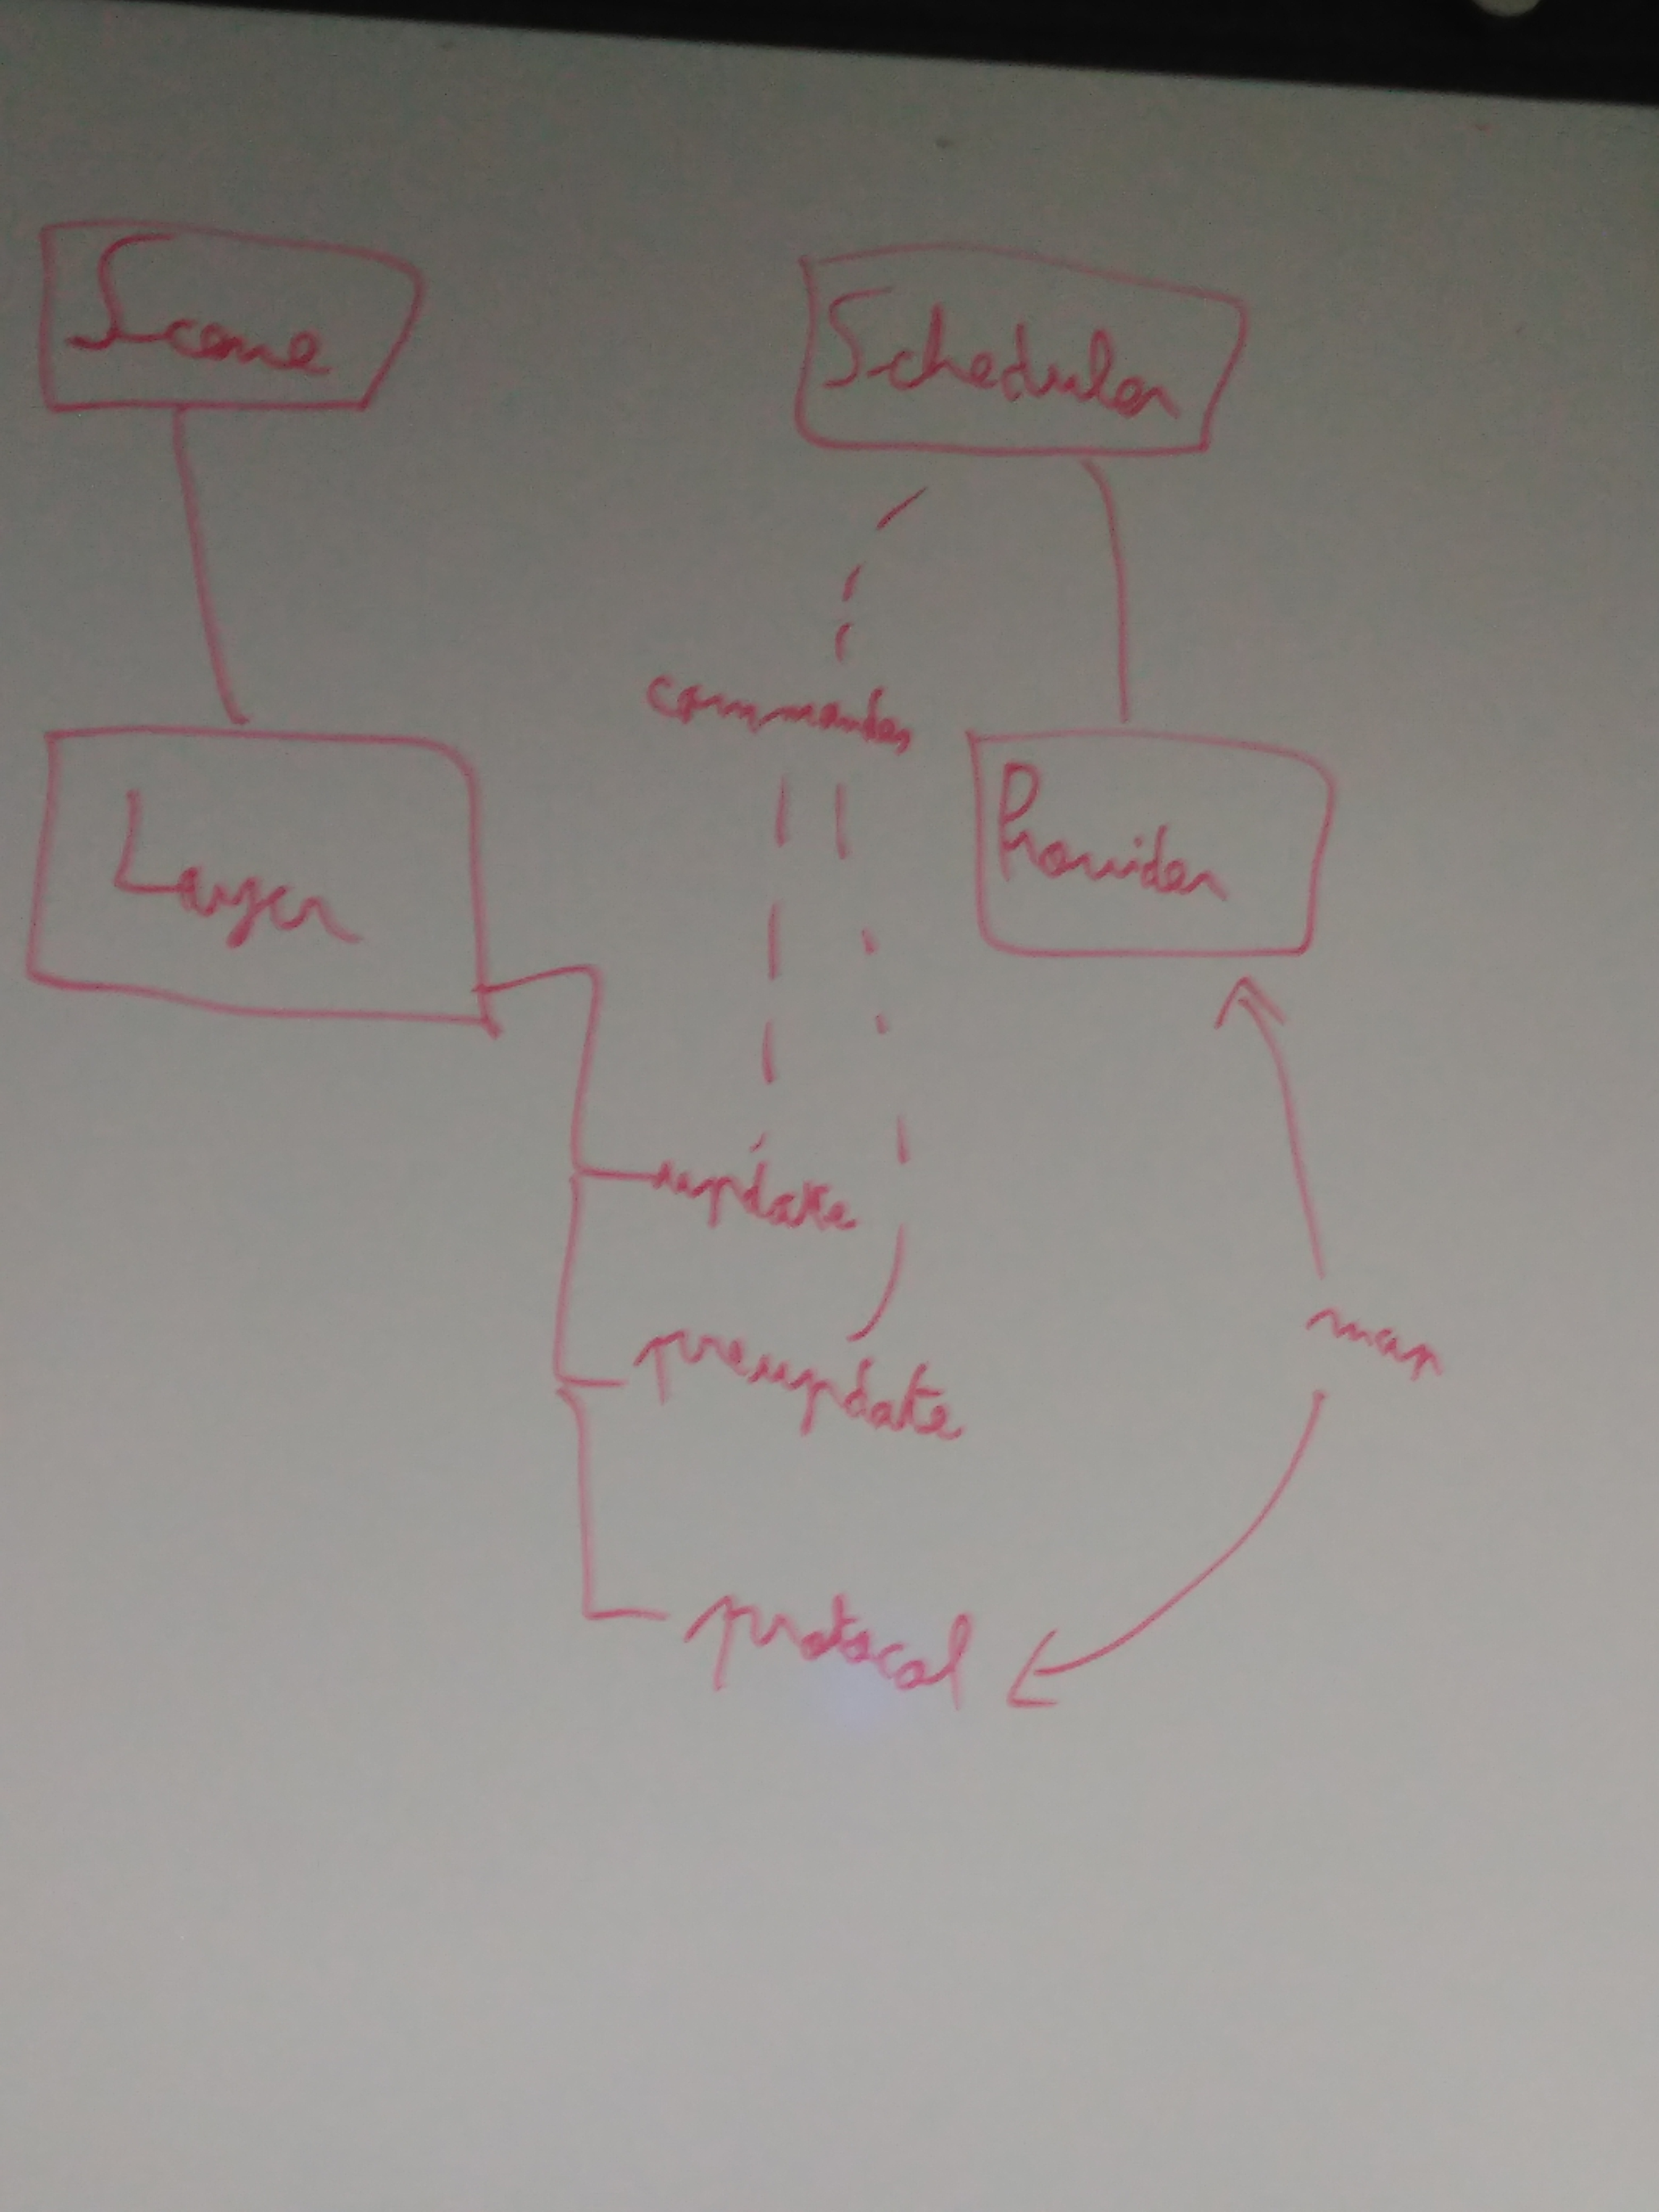 Scene
Scheduler
commandes
Provider
Layer
update
preupdate
map
protocol